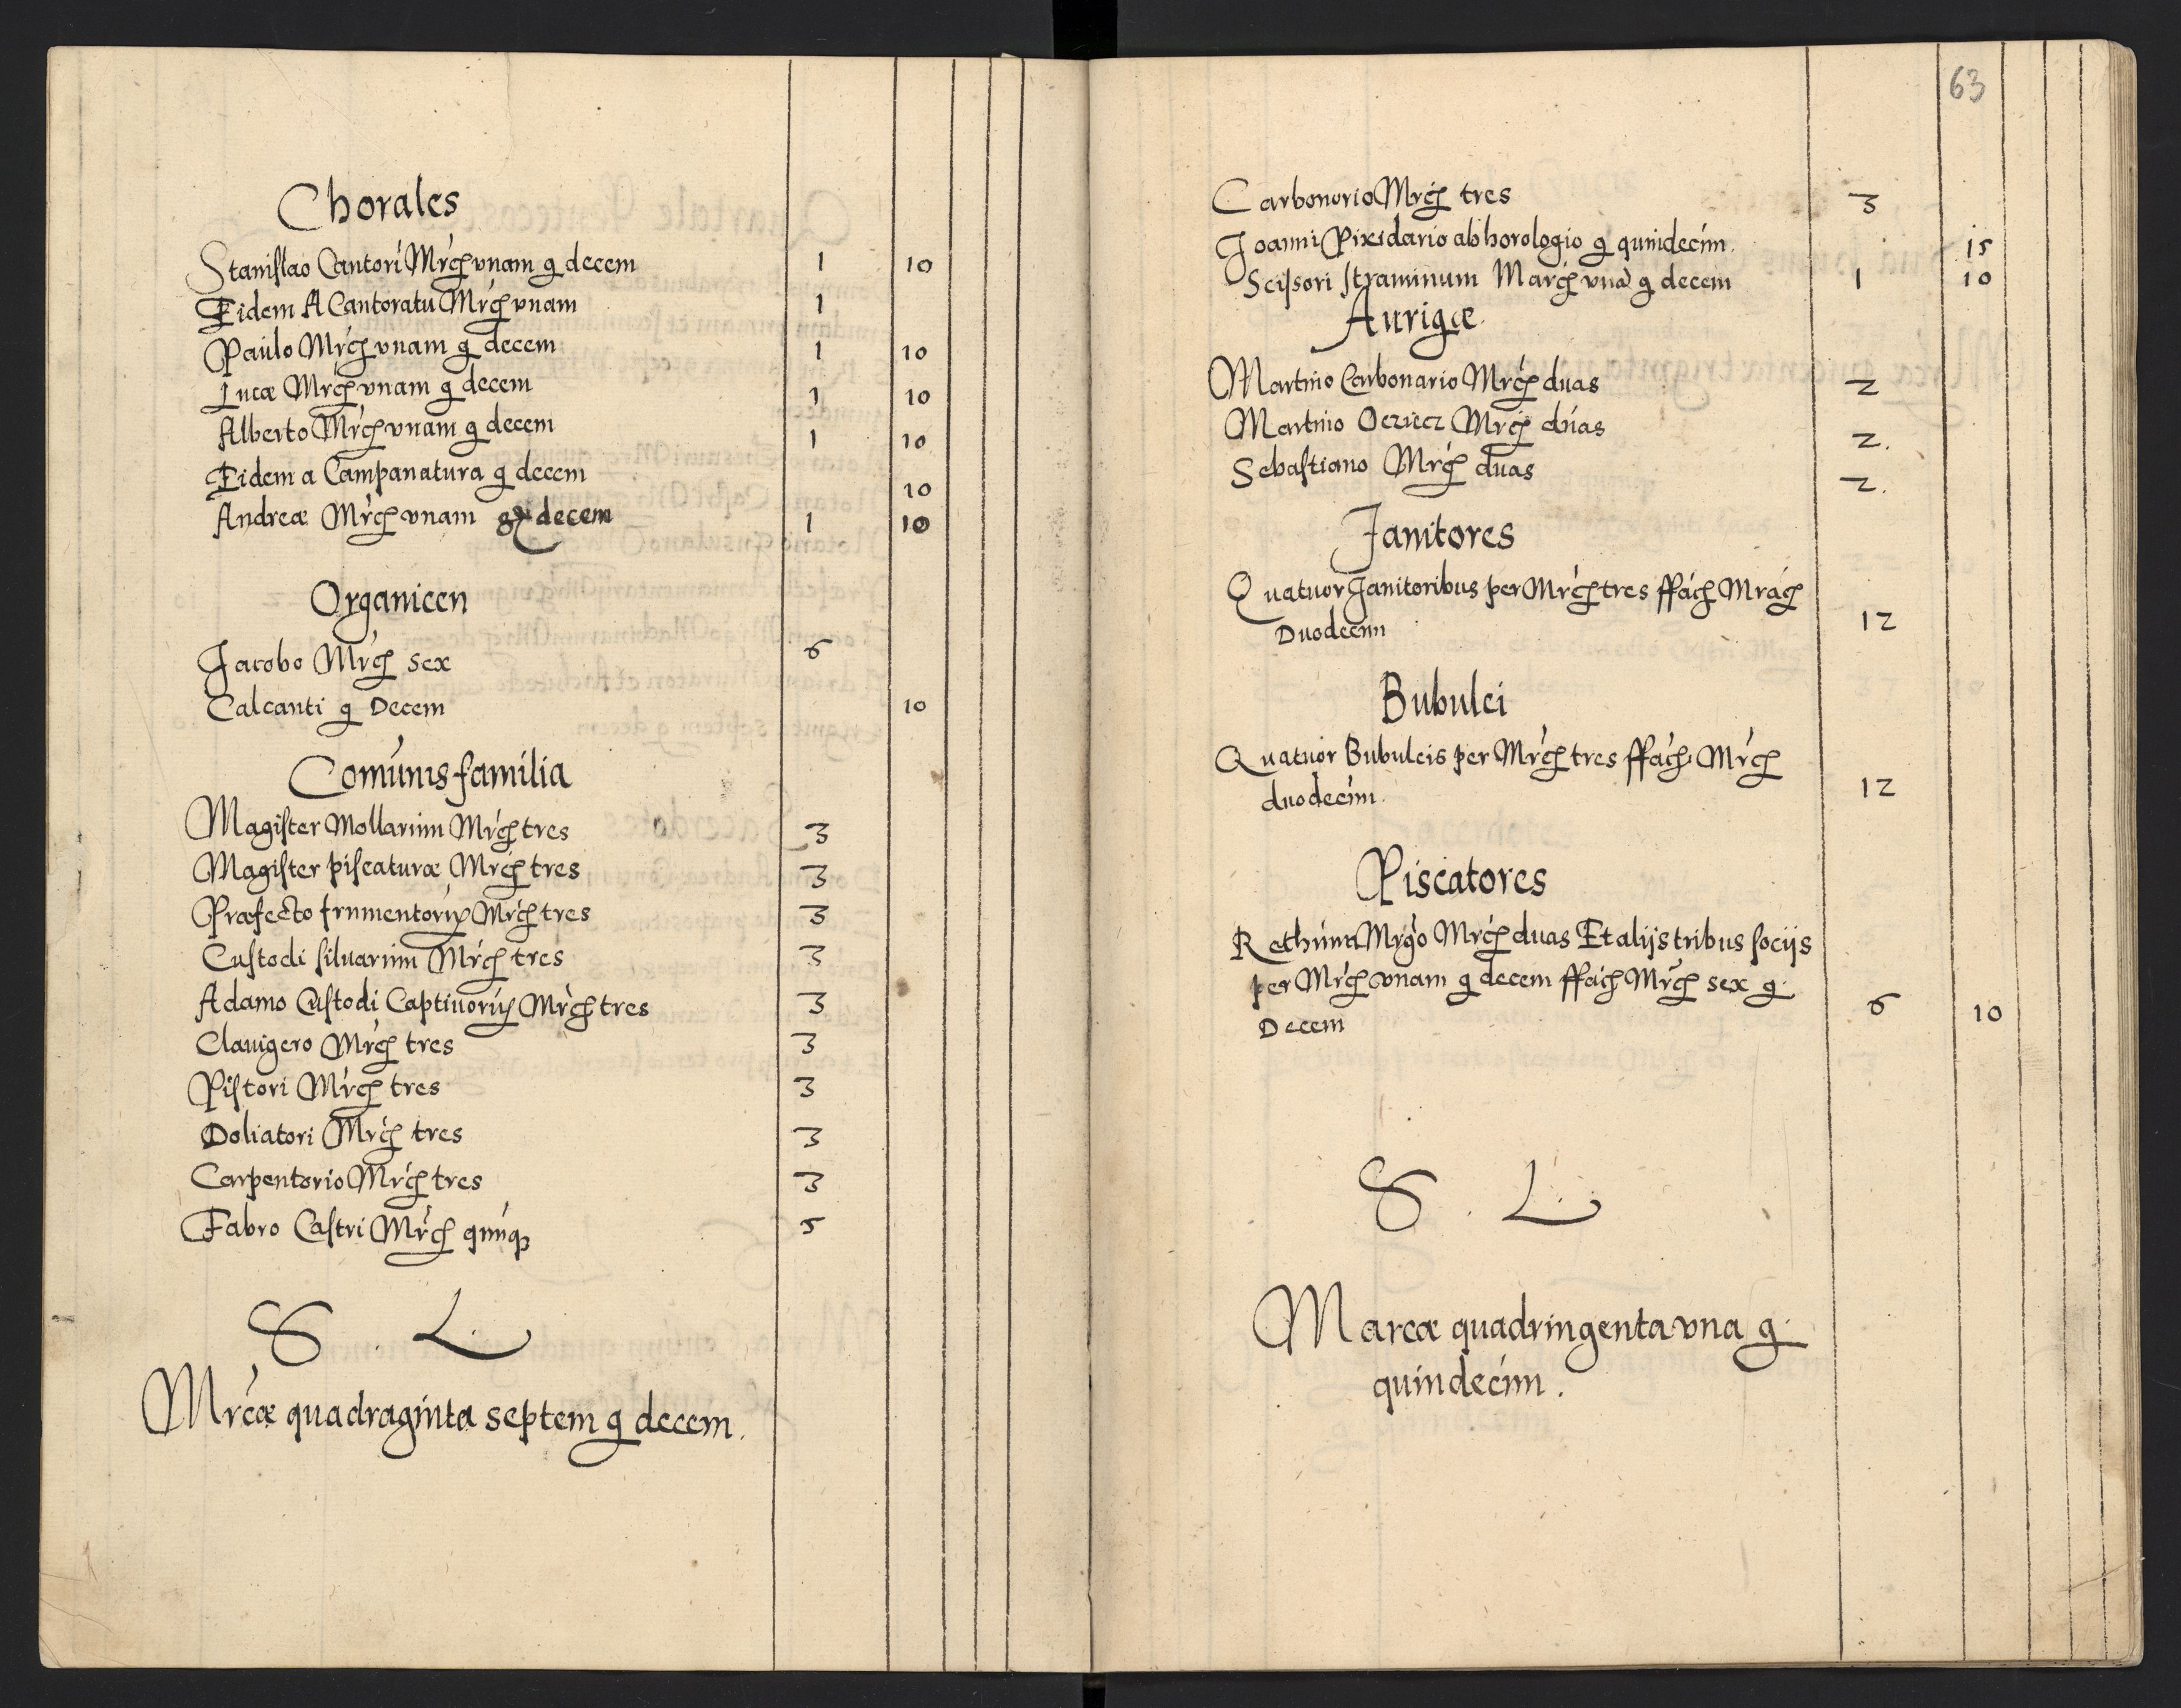 Chorales
Stanislao Cantori Mrcą vnam g decem 1 10
Eidem A Cantoratu Mrcą vnam 1
Paulo Mrcą vnam g decem 1 10
Lucæ Mrcą vnam g decem 1 10
Alberto Mrcą vnam g decem 1 10
Eidem a Campanatura g decem 10
Andreæ Mrcą vnam g decem 1 10
Organicen
Jacobo Mrcą sex 6
Calcanti g Decem 10
Comunis familia
Magister Mollarum Mrcą tres 3
Magister piscaturæ Mrcą tres 3
Præfecto frumentoriy Mrcą tres 3
Custodi siluarum Mrcą tres 3
Adamo Custodi Captiuoriy Mrcą tres 3
Clauigero Mrcą tres 3
Pistori Mrcą tres 3
Doliatori Mrcą tres 3
Carpentario Mrcą tres 3
Fabro Castri Mrcą quinqꝫ 5
S. L.
Mrcæ quadraginta septem g decem.
63
Carbonario Mrcą tres 3
Joanni Pixidario ab horologio g quindecim. 15
Scissori straminum Marcą vnā g decem 1 10
Aurigæ
Martino Carbonario Mrcą duas 2
Martino Ocziecz Mrcą duas 2.
Sebastiano Mrcą duas 2.
Janitores
Quatuor Janitoribus per Mrcą tres ffacą Mracą
Duodecim 12
Bubulci
Quatuor Bubulcis per Mrcą tres ffacą Mrcą
duodecim. 12
Piscatores
Mrgo Mrcą duas Et alijs tribus socijs
per Mrcą vnam g decem ffacą Mrcą sex g.
Decem 6 10
S. L.
Marcæ quadringenta vna g.
quindecim.